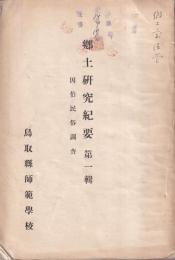 鄉土研究紀要 第一輯
因伯民俗調査
鳥取縣師範學校